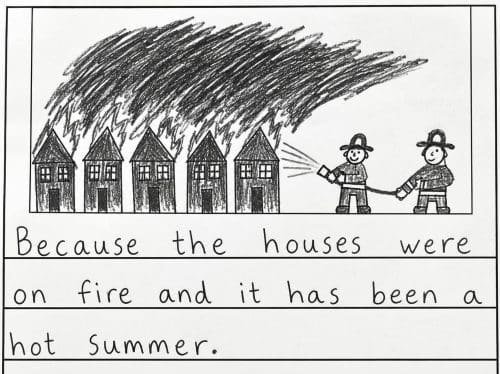 Because the houses were
on fire and it has been a
hot summer.